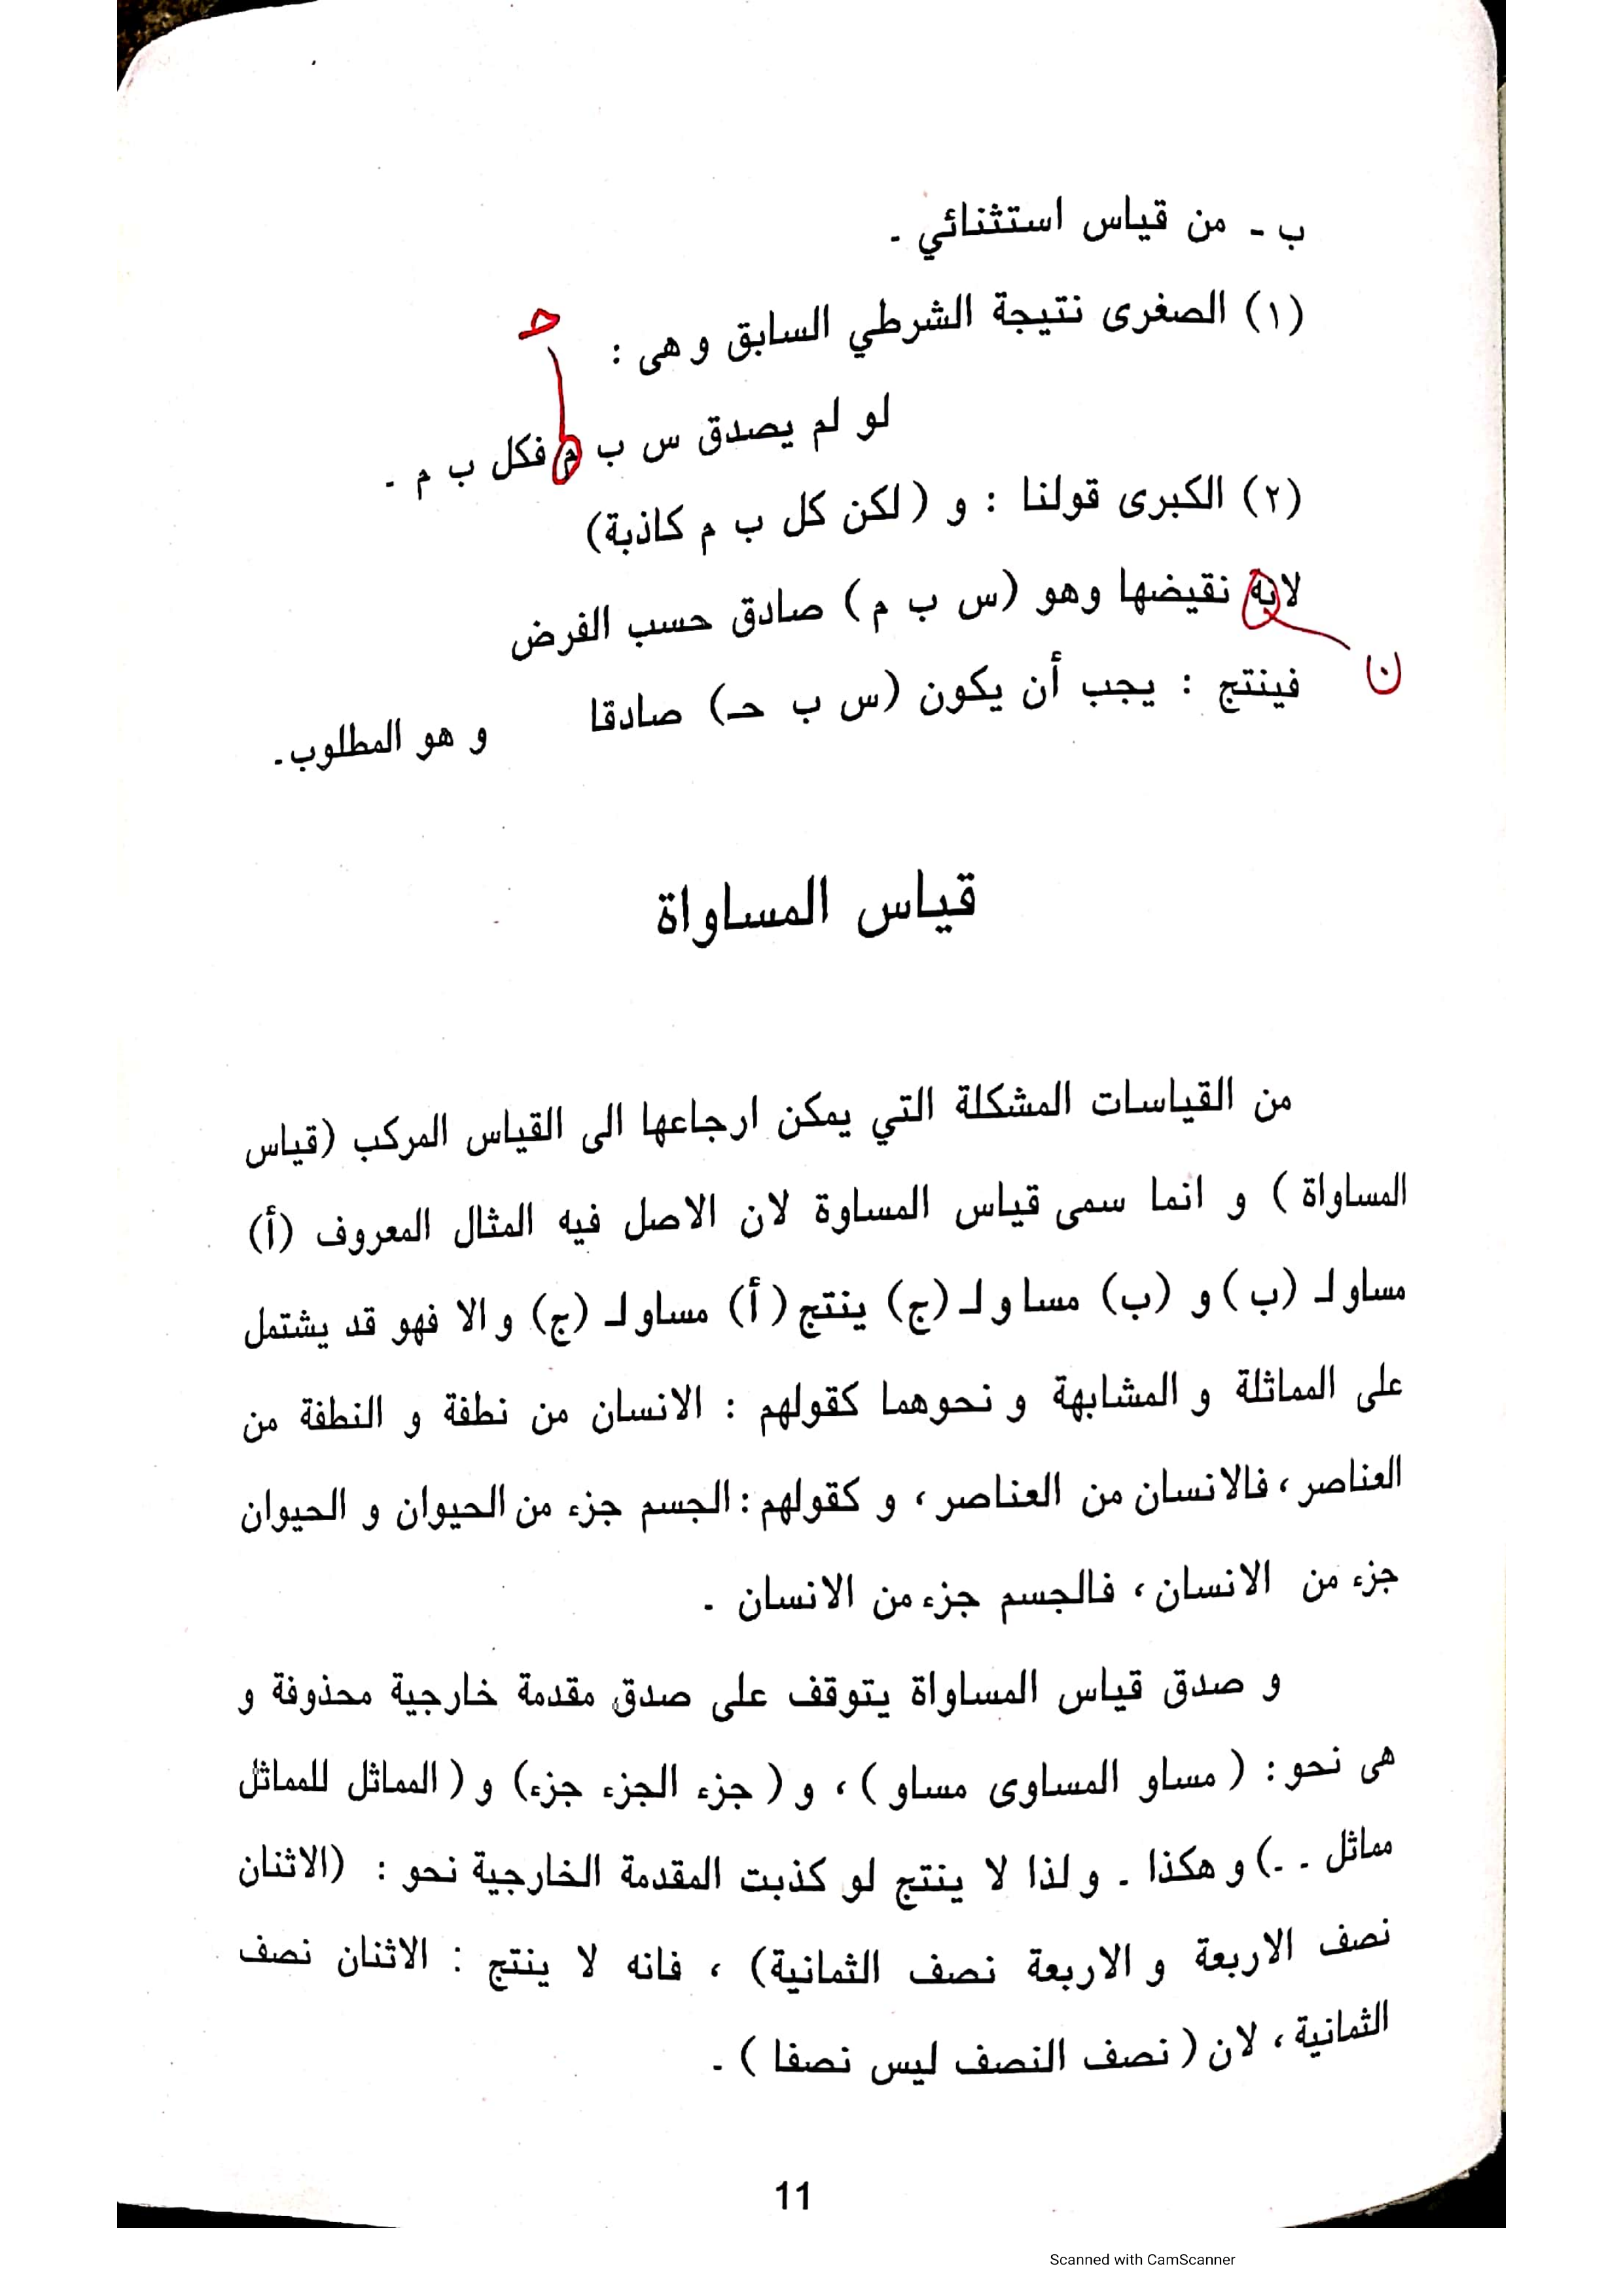 ب - من قياس استثنائي .
(١) الصغرى نتيجة الشرطي السابق و هى :
حـ
لو لم يصدق س ب م فكل ب م .
(٢) الكبرى قولنا : و ( لكن كل ب م كاذبة)
لانه نقيضها وهو (س ب م) صادق حسب الفرض
ن
فينتج : يجب أن يكون (س ب حـ) صادقا و هو المطلوب .
قياس المساواة
من القياسات المشكلة التي يمكن ارجاعها الى القياس المركب (قياس
المساواة ) و انما سمى قياس المساوة لان الاصل فيه المثال المعروف (أ)
مساو لـ (ب) و (ب) مساو لـ (ج) ينتج (أ) مساو لـ (ج) و الا فهو قد يشتمل
على المماثلة و المشابهة و نحوهما كقولهم : الانسان من نطفة و النطفة من
العناصر ، فالانسان من العناصر ، و كقولهم : الجسم جزء من الحيوان و الحيوان
جزء من الانسان ، فالجسم جزء من الانسان .
و صدق قياس المساواة يتوقف على صدق مقدمة خارجية محذوفة و
هى نحو : ( مساو المساوى مساو ) ، و ( جزء الجزء جزء) و ( المماثل للمماثل
مماثل . .) و هكذا . و لذا لا ينتج لو كذبت المقدمة الخارجية نحو : (الاثنان
نصف الاربعة و الاربعة نصف الثمانية) ، فانه لا ينتج : الاثنان نصف
الثمانية ، لان ( نصف النصف ليس نصفا ) .
11
Scanned with CamScanner